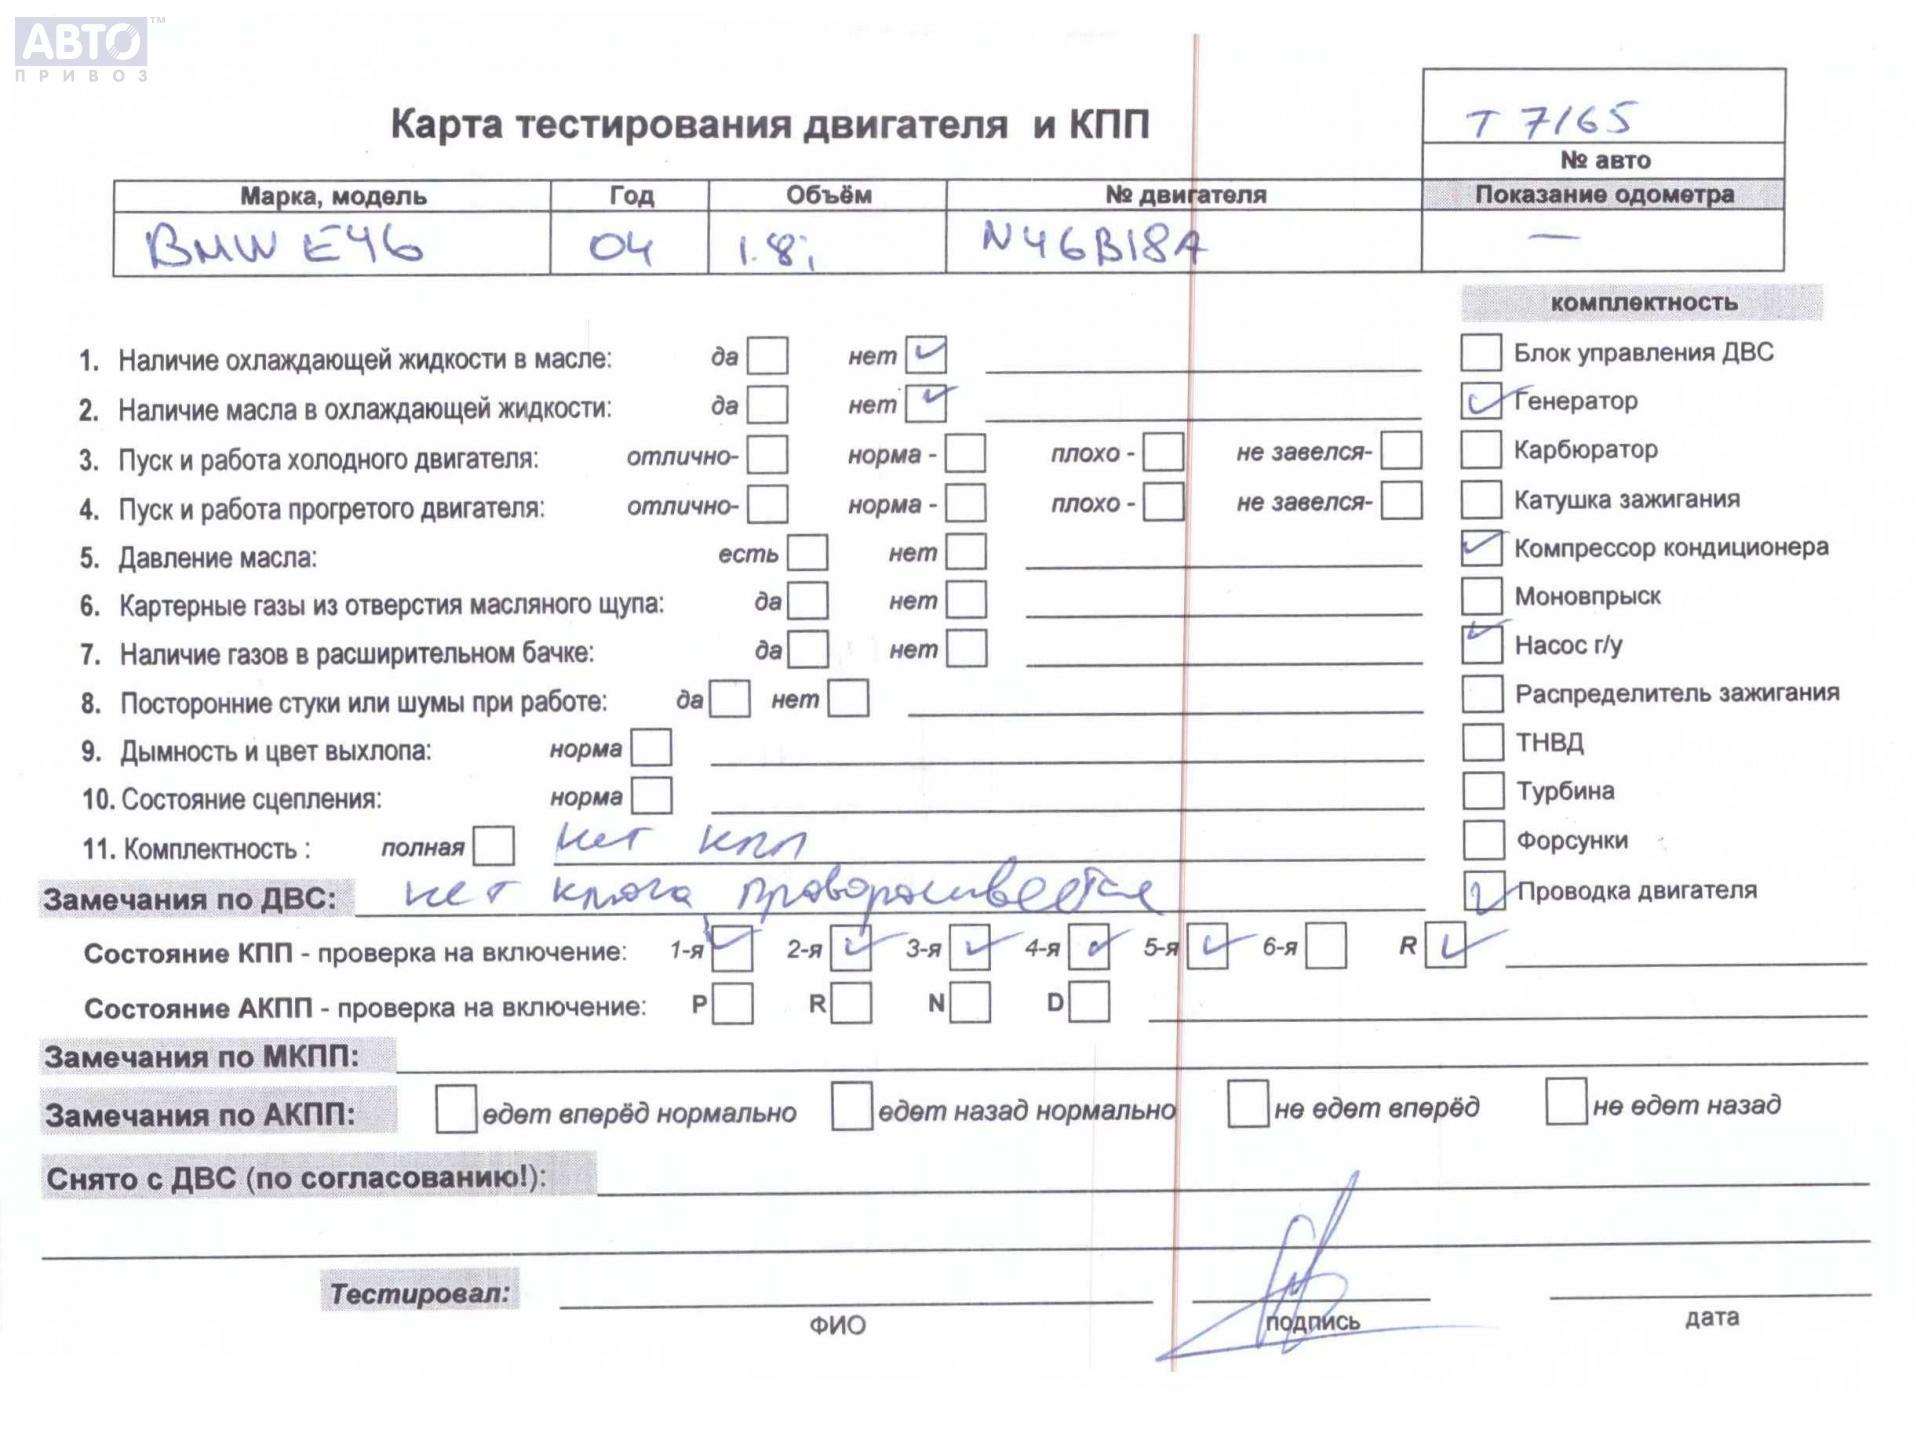 АВТО™
ПРИВОЗ
Карта тестирования двигателя и КПП
Т 7165
№ авто
Марка, модель Год Объём № двигателя Показание одометра
BMW E46 04 1.8i N46B18A —
комплектность
1. Наличие охлаждающей жидкости в масле: да нет ✓ Блок управления ДВС
2. Наличие масла в охлаждающей жидкости: да нет ✓ ✓ Генератор
3. Пуск и работа холодного двигателя: отлично- норма - плохо - не завелся- Карбюратор
4. Пуск и работа прогретого двигателя: отлично- норма - плохо - не завелся- Катушка зажигания
5. Давление масла: есть нет ✓ Компрессор кондиционера
6. Картерные газы из отверстия масляного щупа: да нет Моновпрыск
7. Наличие газов в расширительном бачке: да нет ✓ Насос г/у
8. Посторонние стуки или шумы при работе: да нет Распределитель зажигания
9. Дымность и цвет выхлопа: норма ТНВД
10. Состояние сцепления: норма Турбина
11. Комплектность : полная нет кпп Форсунки
Замечания по ДВС: нет ключа проворачивается ✓ Проводка двигателя
Состояние КПП - проверка на включение: 1-я ✓ 2-я ✓ 3-я ✓ 4-я ✓ 5-я ✓ 6-я R ✓
Состояние АКПП - проверка на включение: P R N D
Замечания по МКПП:
Замечания по АКПП: едет вперёд нормально едет назад нормально не едет вперёд не едет назад
Снято с ДВС (по согласованию!):
Тестировал:
ФИО подпись дата